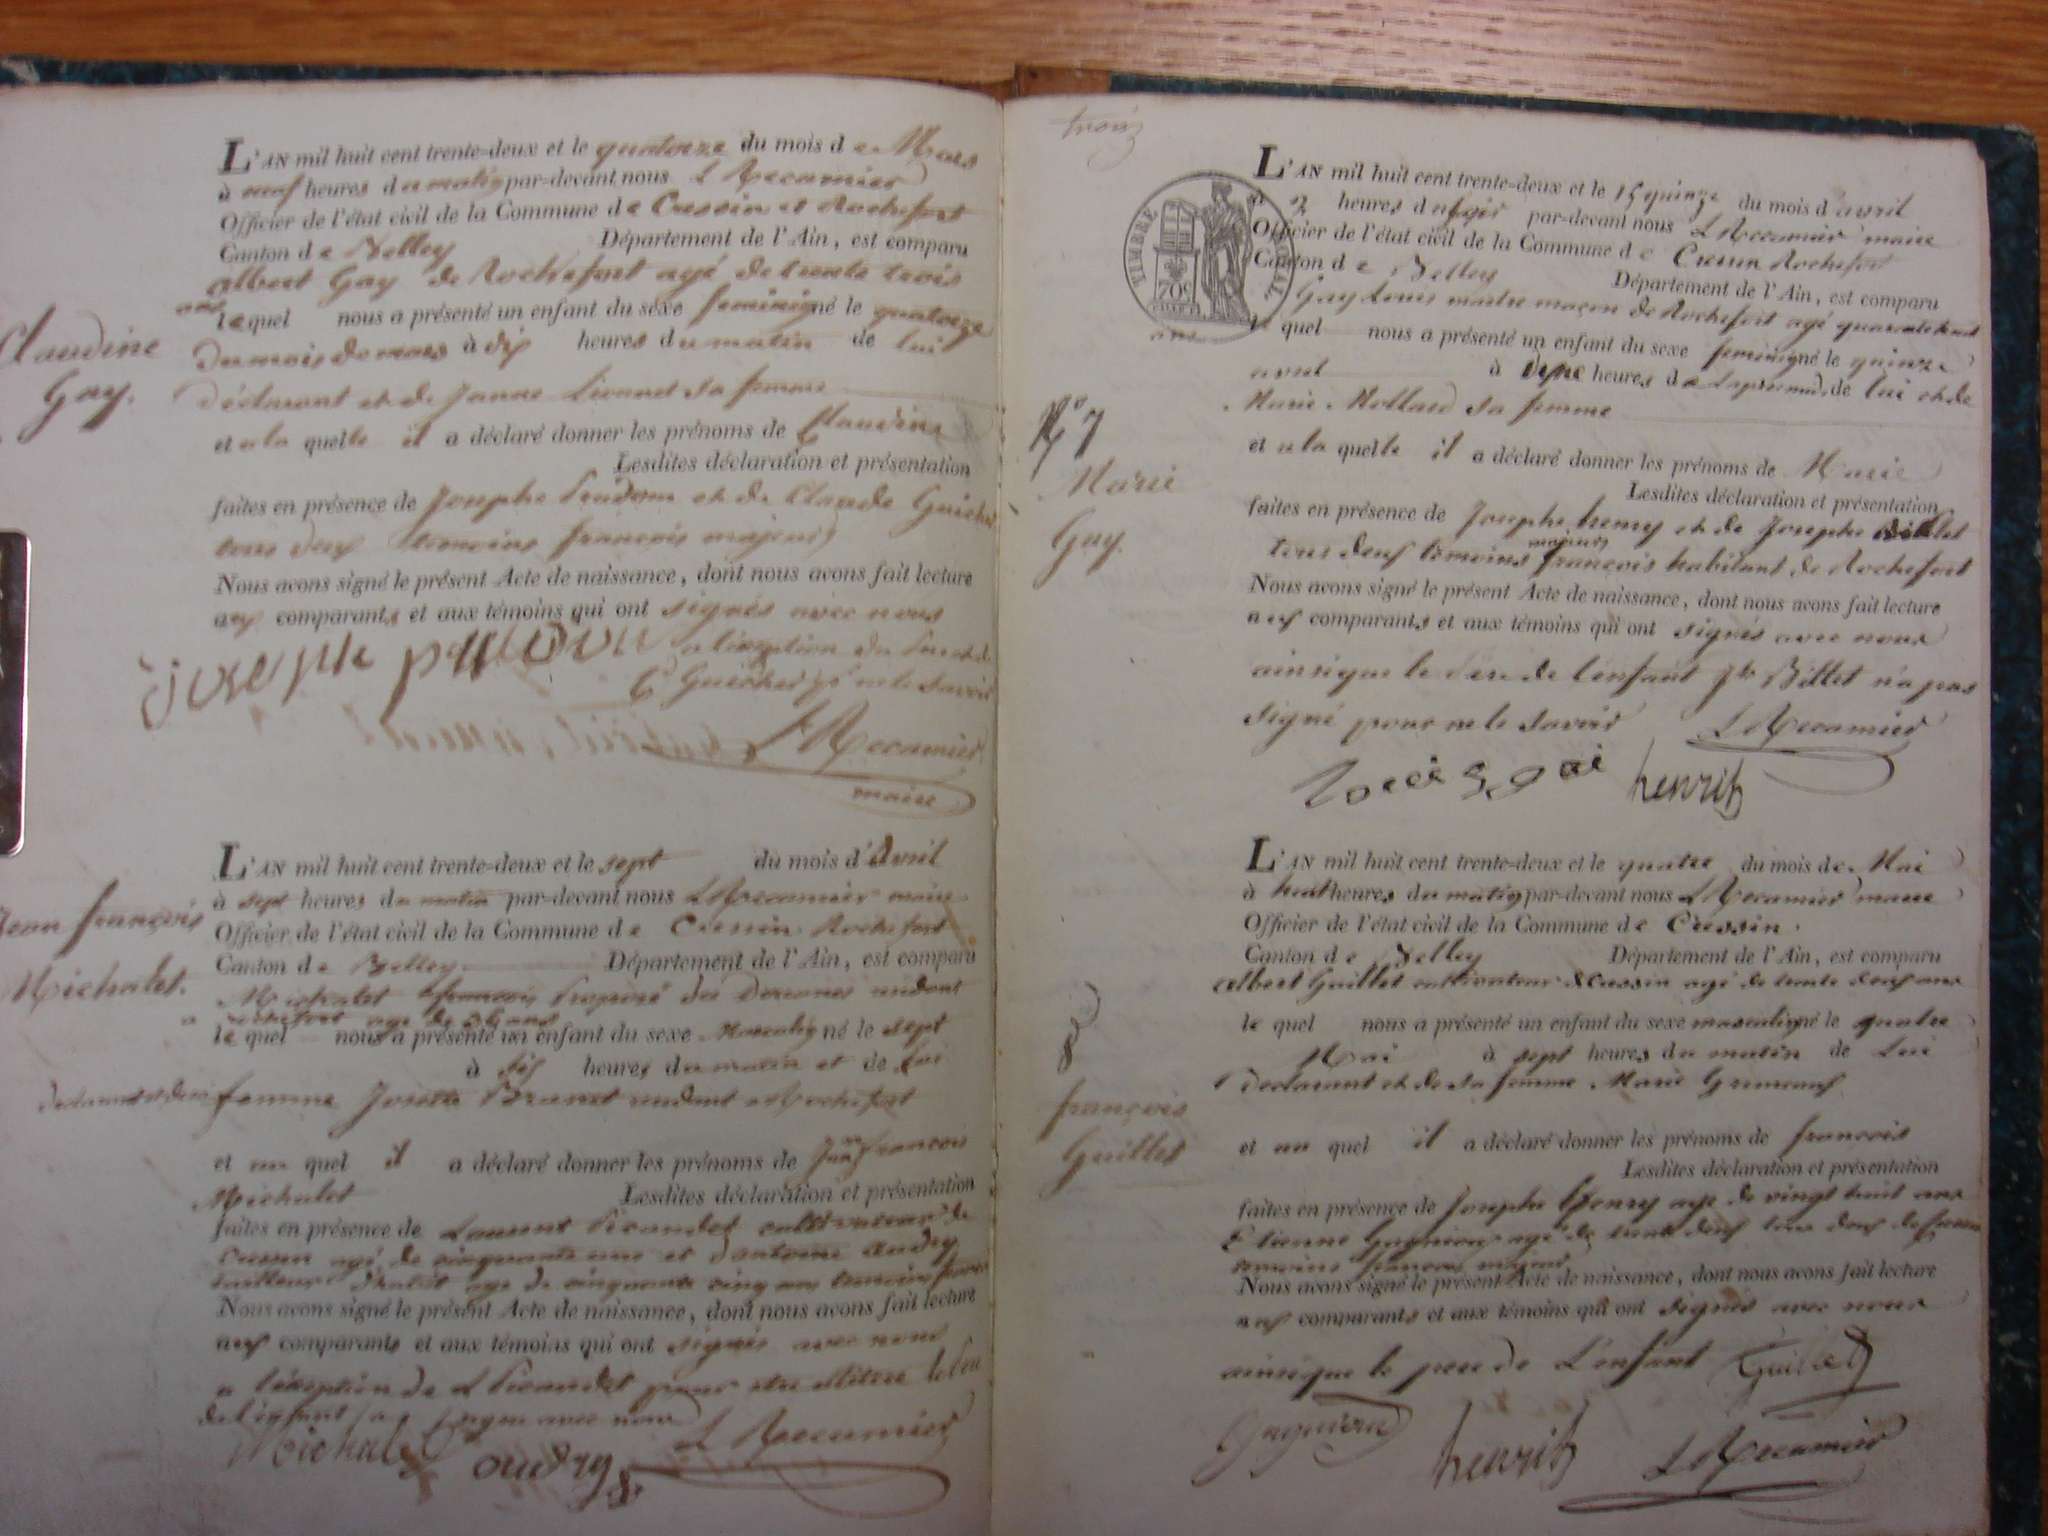 L'AN mil huit cent trente-deux et le quatorze du mois de Mars
à neuf heures du matin par-devant nous L Recamier
Officier de l'état civil de la Commune de Cressin et Rochefort
Canton de Belley Département de l'Ain, est comparu
albert Gay de Rochefort agé de trente trois
ans
lequel nous a présenté un enfant du sexe feminin né le quatorze
du mois de mars à dix heures du matin de lui
Claudine
Gay.
déclarant et de Jeanne sa femme
et a la quelle il a déclaré donner les prénoms de Claudine
Lesdites déclaration et présentation
faites en présence de Josephe et de Claude
tous deux temoins françois majeurs
Nous avons signé le présent Acte de naissance, dont nous avons fait lecture
aux comparants et aux témoins qui ont signés avec nous
joseph a l'exception du
ne le savoir
L Recamier
maire
L'AN mil huit cent trente-deux et le sept du mois d'avril
à sept heures du matin par-devant nous L Recamier maire
Officier de l'état civil de la Commune de Cressin Rochefort
Canton de Belley Département de l'Ain, est comparu
Jean françois
Michalet.
Michalet françois preposé des Douanes
a rochefort agé de ans
le quel nous a présenté un enfant du sexe Masculin né le sept
à six heures du matin et de lui
femme Josette a Rochefort
et au quel il a déclaré donner les prénoms de Jean francois
Michalet Lesdites déclaration et présentation
faites en présence de Laurent cultivateur de
Cressin agé de cinquante ans et d'antoine audry
tailleur agé de cinquante cinq ans temoins
Nous avons signé le présent Acte de naissance, dont nous avons fait lecture
aux comparants et aux témoins qui ont signés avec nous
a l'exception de L pour etre
de l'enfant a signé avec nous
Michalet audry L Recamier
TIMBRE ROYAL
70c
L'AN mil huit cent trente-deux et le 15 quinze du mois d'avril
à heures du soir par-devant nous L Recamier maire
Officier de l'état civil de la Commune de Cressin Rochefort
Canton de Belley Département de l'Ain, est comparu
Gay Louis maitre maçon de Rochefort agé
ans le quel nous a présenté un enfant du sexe feminin né le quinze
avril à heures de de lui et de
Marie Mollard sa femme
No 7
Marie
Gay.
et a la quelle il a déclaré donner les prénoms de Marie
Lesdites déclaration et présentation
faites en présence de Josephe henry et de Josephe billet
tous deux temoins majeurs françois habitant de Rochefort
Nous avons signé le présent Acte de naissance, dont nous avons fait lecture
aux comparants et aux témoins qui ont signés avec nous
ainsi que le Pere de l'enfant Jh Billet n'a pas
signé pour ne le savoir L Recamier
henry
L'AN mil huit cent trente-deux et le quatre du mois de Mai
à huit heures du matin par-devant nous L Recamier maire
Officier de l'état civil de la Commune de Cressin.
Canton de Belley Département de l'Ain, est comparu
albert Guillet cultivateur de Cressin agé de trente deux ans
le quel nous a présenté un enfant du sexe masculin né le quatre
Mai à sept heures du matin de Lui
déclarant et de sa femme Marie
8
françois
Guillet
et au quel il a déclaré donner les prénoms de francois
Lesdites déclaration et présentation
faites en présence de Josephe henry agé de vingt huit ans
Etienne agé de trente deux tous deux de
temoins francois majeurs
Nous avons signé le présent Acte de naissance, dont nous avons fait lecture
aux comparants et aux témoins qui ont signés avec nous
ainsi que le pere de L'enfant Guillet
henry L Recamier